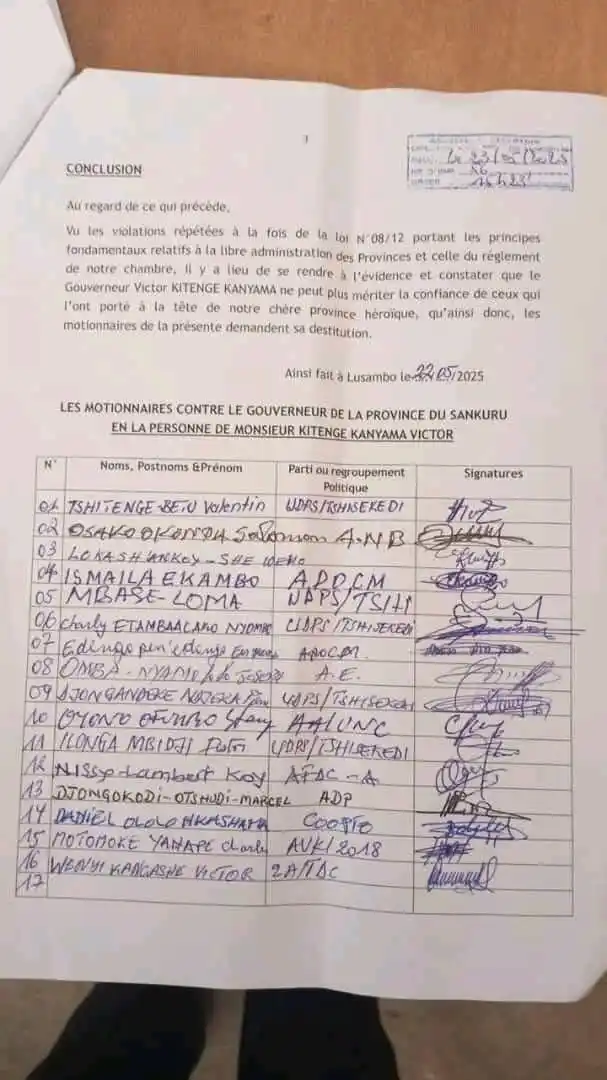 le 23/05/2025
16
CONCLUSION
Au regard de ce qui précède,
Vu les violations répétées à la fois de la loi N°08/12 portant les principes
fondamentaux relatifs à la libre administration des Provinces et celle du règlement
de notre chambre, il y a lieu de se rendre à l'évidence et constater que le
Gouverneur Victor KITENGE KANYAMA ne peut plus mériter la confiance de ceux qui
l'ont porté à la tête de notre chère province héroïque, qu'ainsi donc, les
motionnaires de la présente demandent sa destitution.
Ainsi fait à Lusambo le 22/05/2025
LES MOTIONNAIRES CONTRE LE GOUVERNEUR DE LA PROVINCE DU SANKURU
EN LA PERSONNE DE MONSIEUR KITENGE KANYAMA VICTOR
N° Noms, Postnoms &Prénom Parti ou regroupement Politique Signatures
01 TSHITENGE-BETU Valentin UDPS/TSHISEKEDI
02 OSAKO OKENDA Salomon A.N.B
03 LOKASH
04 ISMAILA EKAMBO APOCM
05 MBASE-LOMA
06 Charly ETAMBAALAKO NYOMBE UDPS/TSHISEKEDI
07 Edingo pen'edingo APOCM
08 OMBA-NYAMO A.E.
09 DJONGANDEKE UDPS/TSHISEKEDI
10 OYONO
11 ILONGA MBIDJI UDPS/TSHISEKEDI
12 Nissy Lambert Koy AFDC-A
13 DJONGOKODI-OTSHUDI-MARCEL ADP
14 DANIEL OLOLO NKASHAMA
15 MOTOMOKE YANAPE Charle AVK/2018
16 WENYI KANGASHE VICTOR 2A/TDC
17